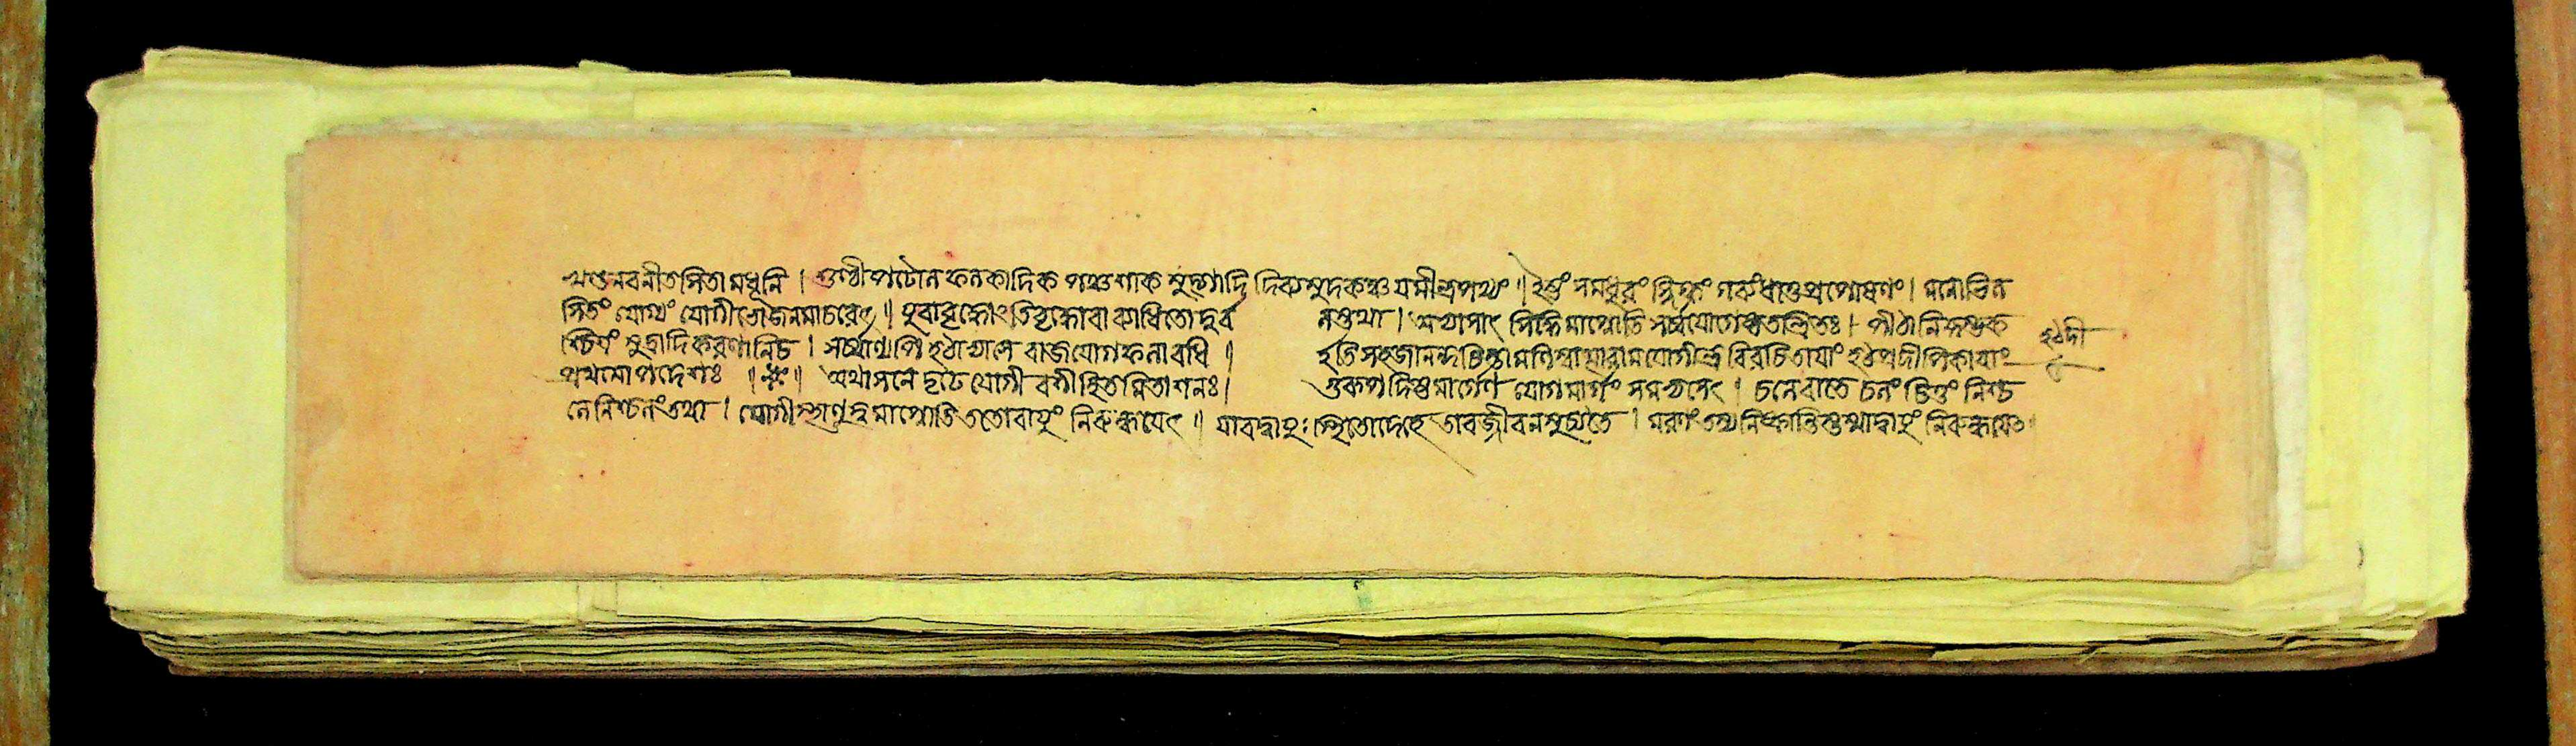 খণ্ডনবনীতসিতামধূনি । শুণ্ঠীপটোলফলকাদিক পঞ্চশাক মুদ্গাদি দিব্যমুদকঞ্চ যমীন্দ্রপথ্যং ॥ ইষ্টং সমধুরং স্নিগ্ধং গব্যং ধাতুপ্রপোষণং । মনোভিল
সিতং যোগ্যং যোগীভোজনমাচরেৎ ॥ যুবাবৃদ্ধোঽতিবৃদ্ধোবা ব্যাধিতো দুর্ব লস্তথা । অভ্যাসাৎ সিদ্ধিমাপ্নোতি সর্ব্বযোগেষ্বতন্দ্রিতঃ । পীঠানিকুম্ভক
শ্চিত্রং মুদ্রাদিকরণানিচ । সর্ব্বাণ্যপি হঠাভ্যাসে রাজযোগফলাবধি ॥ ইতি সহজানন্দচিন্তামণিস্বাত্মারামযোগীন্দ্র বিরচিতায়াং হঠপ্রদীপিকায়াং
প্রথমোপদেশঃ ॥ অথাসনে দৃঢ়ে যোগী বশীহিতমিতাশনঃ । গুরূপদিষ্টমার্গেণ যোগমার্গং সমভ্যসেৎ । চলেবাতে চলং চিত্তং নিশ্চ
লেনিশ্চলংতথা । যোগীস্থাণুত্বমাপ্নোতি ততোবায়ুং নিরুন্ধয়েৎ ॥ যাবদ্বায়ুঃ স্থিতোদেহে তাবজ্জীবনমুচ্যতে । মরণং তস্যনিষ্ক্রান্তিস্তস্মাদ্বায়ুং নিরুন্ধয়েৎ
হঠদী